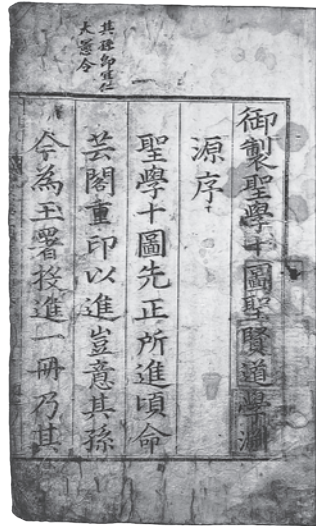 御製聖學十圖聖賢道學淵
源序
聖學十圖先正所進頃命
芸閣重印以進豈意其孫
今為玉署投進一冊乃其
其孫即
大憲令